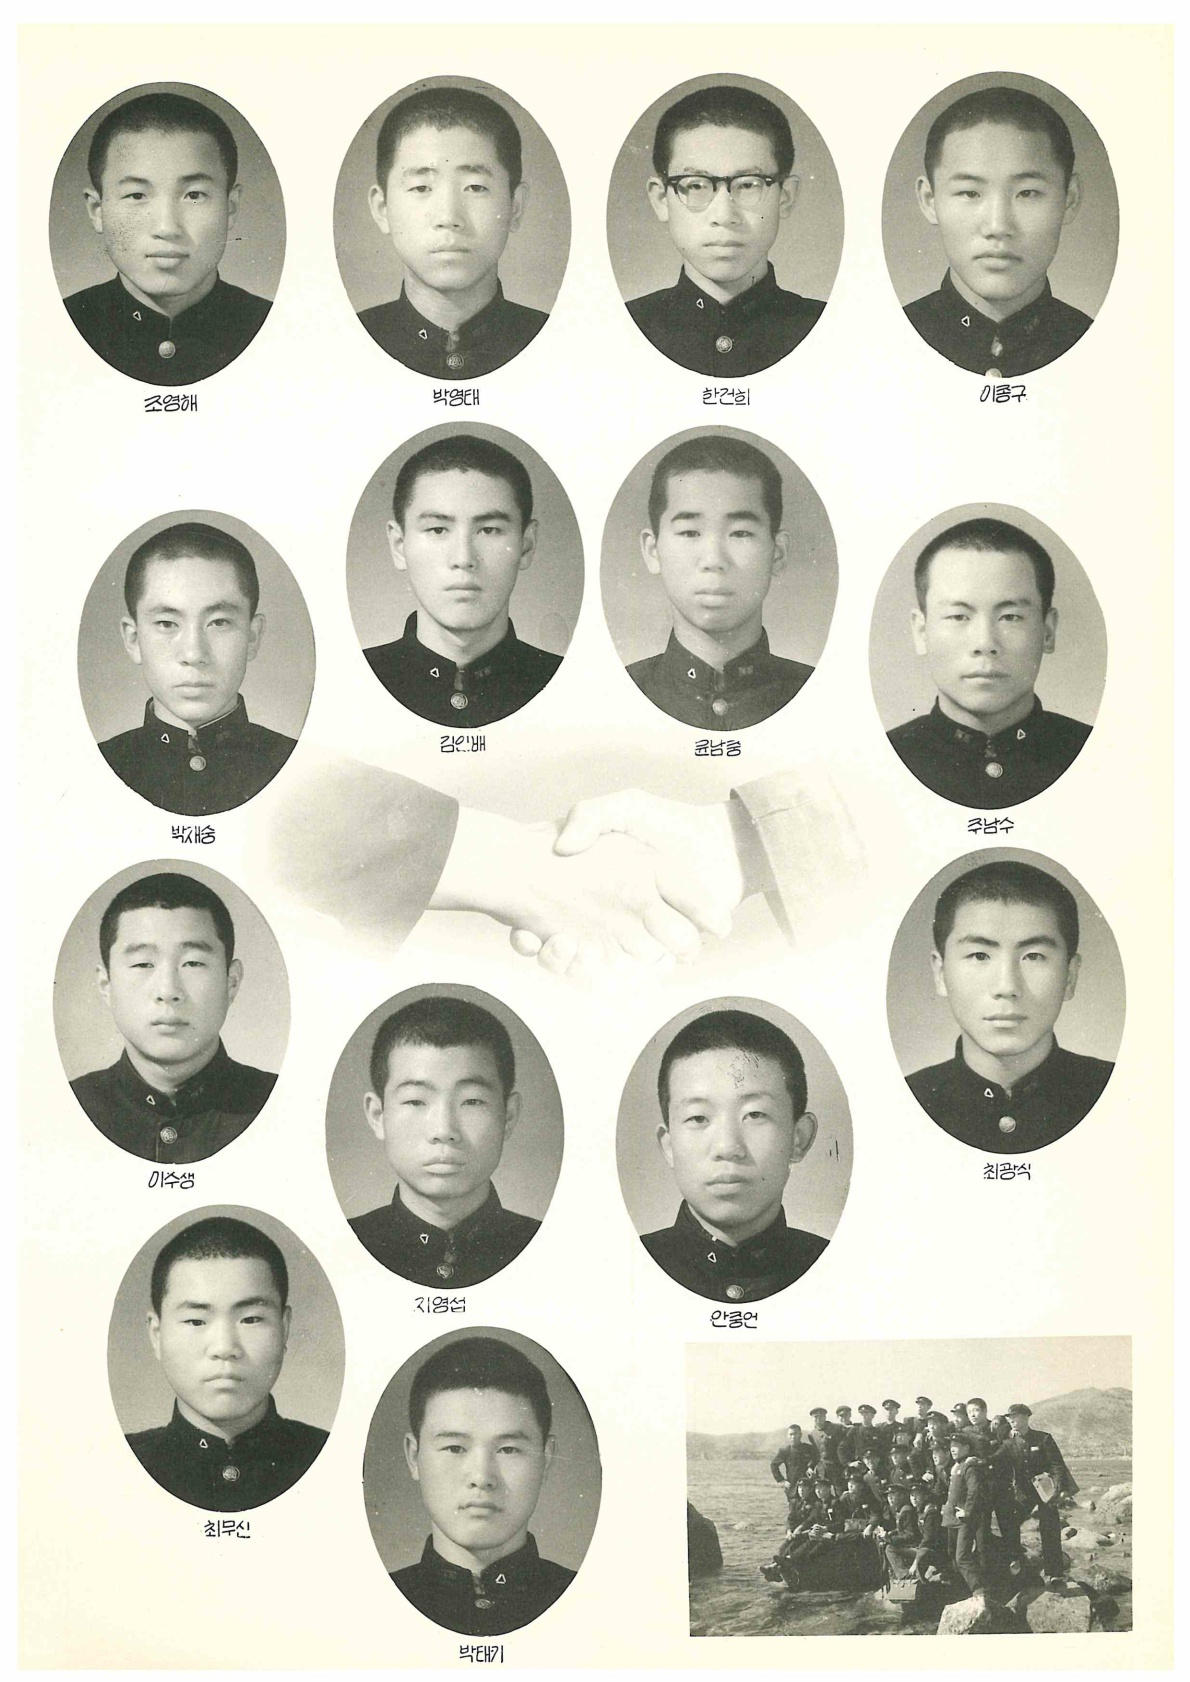 조영해
박영태
한건희
이종구
김인배
윤남중
박재숭
주남수
이수생
최광식
지영섭
안중언
최무신
박태기